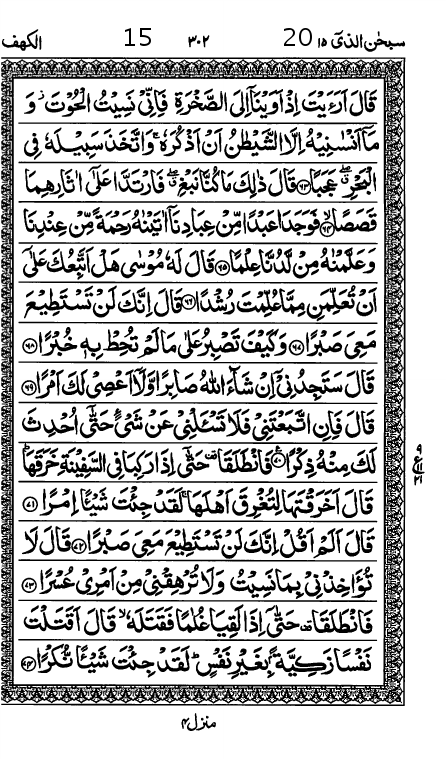 سبحٰن الذی ۱۵ 20 ۳۰۲ 15 الکهف
قَالَ اَرَءَيْتَ اِذْ اَوَيْنَاۤ اِلَى الصَّخْرَةِ فَاِنِّىْ نَسِيْتُ الْحُوْتَ ؗ وَ
مَاۤ اَنْسٰىنِيْهُ اِلَّا الشَّيْطٰنُ اَنْ اَذْكُرَهٗ ۚ وَاتَّخَذَ سَبِيْلَهٗ فِى
الْبَحْرِ ۖۗ عَجَبًا ﴿۶۳﴾ قَالَ ذٰلِكَ مَا كُنَّا نَبْغِ ۖۗ فَارْتَدَّا عَلٰۤى اٰثَارِهِمَا
قَصَصًا ۙ﴿۶۴﴾ فَوَجَدَا عَبْدًا مِّنْ عِبَادِنَاۤ اٰتَيْنٰهُ رَحْمَةً مِّنْ عِنْدِنَا
وَعَلَّمْنٰهُ مِنْ لَّدُنَّا عِلْمًا ﴿۶۵﴾ قَالَ لَهٗ مُوْسٰى هَلْ اَتَّبِعُكَ عَلٰۤى
اَنْ تُعَلِّمَنِ مِمَّا عُلِّمْتَ رُشْدًا ﴿۶۶﴾ قَالَ اِنَّكَ لَنْ تَسْتَطِيْعَ
مَعِىَ صَبْرًا ﴿۶۷﴾ وَكَيْفَ تَصْبِرُ عَلٰى مَا لَمْ تُحِطْ بِهٖ خُبْرًا ﴿۶۸﴾
قَالَ سَتَجِدُنِىْۤ اِنْ شَآءَ اللّٰهُ صَابِرًا وَّلَاۤ اَعْصِىْ لَكَ اَمْرًا ﴿۶۹﴾
قَالَ فَاِنِ اتَّبَعْتَنِىْ فَلَا تَسْـَٔلْنِىْ عَنْ شَىْءٍ حَتّٰۤى اُحْدِثَ
لَكَ مِنْهُ ذِكْرًا ﴿۷۰﴾ فَانْطَلَقَا ۥ حَتّٰۤى اِذَا رَكِبَا فِى السَّفِيْنَةِ خَرَقَهَا ؕ
قَالَ اَخَرَقْتَهَا لِتُغْرِقَ اَهْلَهَا ۚ لَقَدْ جِئْتَ شَيْـًٔا اِمْرًا ﴿۷۱﴾
قَالَ اَلَمْ اَقُلْ اِنَّكَ لَنْ تَسْتَطِيْعَ مَعِىَ صَبْرًا ﴿۷۲﴾ قَالَ لَا
تُؤَاخِذْنِىْ بِمَا نَسِيْتُ وَلَا تُرْهِقْنِىْ مِنْ اَمْرِىْ عُسْرًا ﴿۷۳﴾
فَانْطَلَقَا ۥ حَتّٰۤى اِذَا لَقِيَا غُلٰمًا فَقَتَلَهٗ ۙ قَالَ اَقَتَلْتَ
نَفْسًا زَكِيَّةًۢ بِغَيْرِ نَفْسٍ ؕ لَقَدْ جِئْتَ شَيْـًٔا نُّكْرًا ﴿۷۴﴾
۹
ع
۲۱
منزل ۴